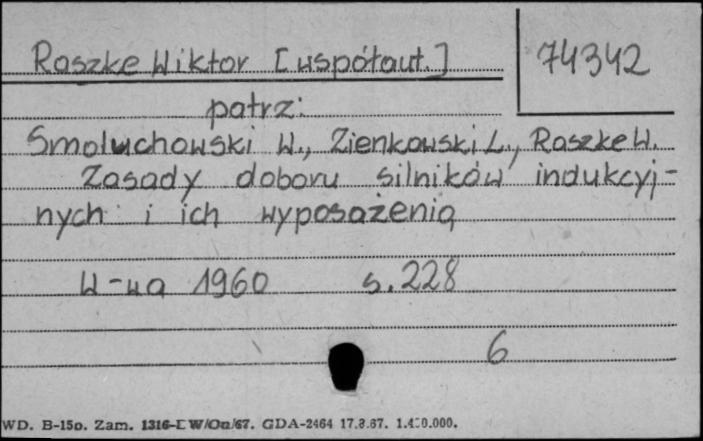 Raszke Wiktor [współaut.]
74342
patrz:
Smoluchowski W., Zienkowski L., Raszke W.
Zasady doboru silników indukcyj-
nych i ich wyposażenia
W-wa 1960 s. 228
6
WD. B-15o. Zam. 1316-L W/Oa/67. GDA-2464 17.8.67.